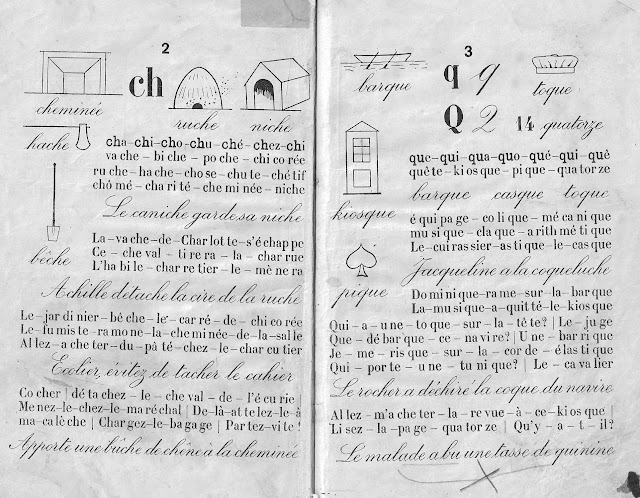 2
ch
cheminée
ruche
niche
hache
cha-chi-cho-chu-ché-chez-chi
va che – bi che – po che – chi co rée
ru che – ha che – cho se – chu te – ché tif
chô mé – cha ri té – che mi née – niche
Le caniche garde sa niche
bêche
La – va che – de – Char lot te – s'é chap pe
Ce – che val – ti re ra – la – char rue
L'ha bi le – char re tier – le – mè ne ra
Achille détache la cire de la ruche
Le – jar di nier – bê che – le – car ré – de – chi co rée
Le – fu mis te – ra mo ne – la – che mi née – de – la – sal le
Al lez – a che ter – du – pâ té – chez – le – char cu tier
Ecolier, évitez de tacher le cahier
Co cher | dé ta chez – le – che val – de – l'é cu rie |
Me nez – le – chez – le – ma ré chal | De – là – at te lez – le – à
ma – ca lè che | Char gez – le – ba ga ge | Par tez – vi te !
Apporte une bûche de chêne à la cheminée
3
barque
q q
toque
Q 2
14 quatorze
que-qui-qua-quo-qué-qui-què
quê te – ki os que – pi que – qua tor ze
barque casque toque
kiosque
é qui pa ge – co li que – mé ca ni que
mu si que – cla que – a rith mé ti que
Le – cui ras sier – as ti que – le – cas que
pique
Jacqueline a la coqueluche
Do mi ni que – ra me – sur – la – bar que
La – mu si que – a – quit té – le – kios que
Qui – a – u ne – to que – sur – la – tê te ? | Le – ju ge
Que – dé bar que – ce – na vi re ? | U ne – bar ri que
Je – me – ris que – sur – la – cor de – é las ti que
Qui – por te – u ne – tu ni que ? | Le – ca va lier
Le rocher a déchiré la coque du navire
Al lez – m'a che ter – la – re vue – à – ce – ki os que |
Li sez – la – pa ge – qua tor ze | Qu'y – a – t – il ?
Le malade a bu une tasse de quinine